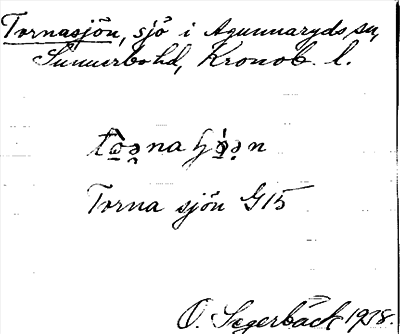 Tornasjön, sjö i Agunnaryds sn,
Sunnerbo hd, Kronob. l.
Torna sjön G15
O. Segerbäck 1938.